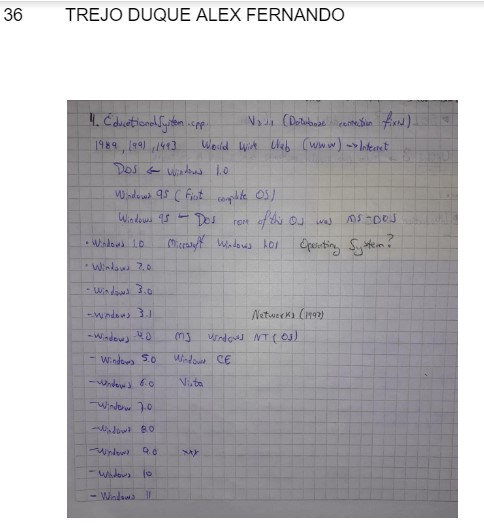 36 TREJO DUQUE ALEX FERNANDO
4. EducationalSystem.cpp V3.11 (Database connection fixed)
1989, 1991, 1993 World Wide Web (www) → Internet
DOS ← Windows 1.0
Windows 95 (First complete OS)
Windows 95 - DOS core of this OS was MS-DOS
• Windows 1.0 Microsoft Windows 1.01 Operating System?
• Windows 2.0
• Windows 3.0
- Windows 3.1 Networks (1992)
- Windows 4.0 MS Windows NT (OS)
- Windows 5.0 Windows CE
- Windows 6.0 Vista
- Windows 7.0
- Windows 8.0
- Windows 9.0 xxx
- Windows 10
- Windows 11